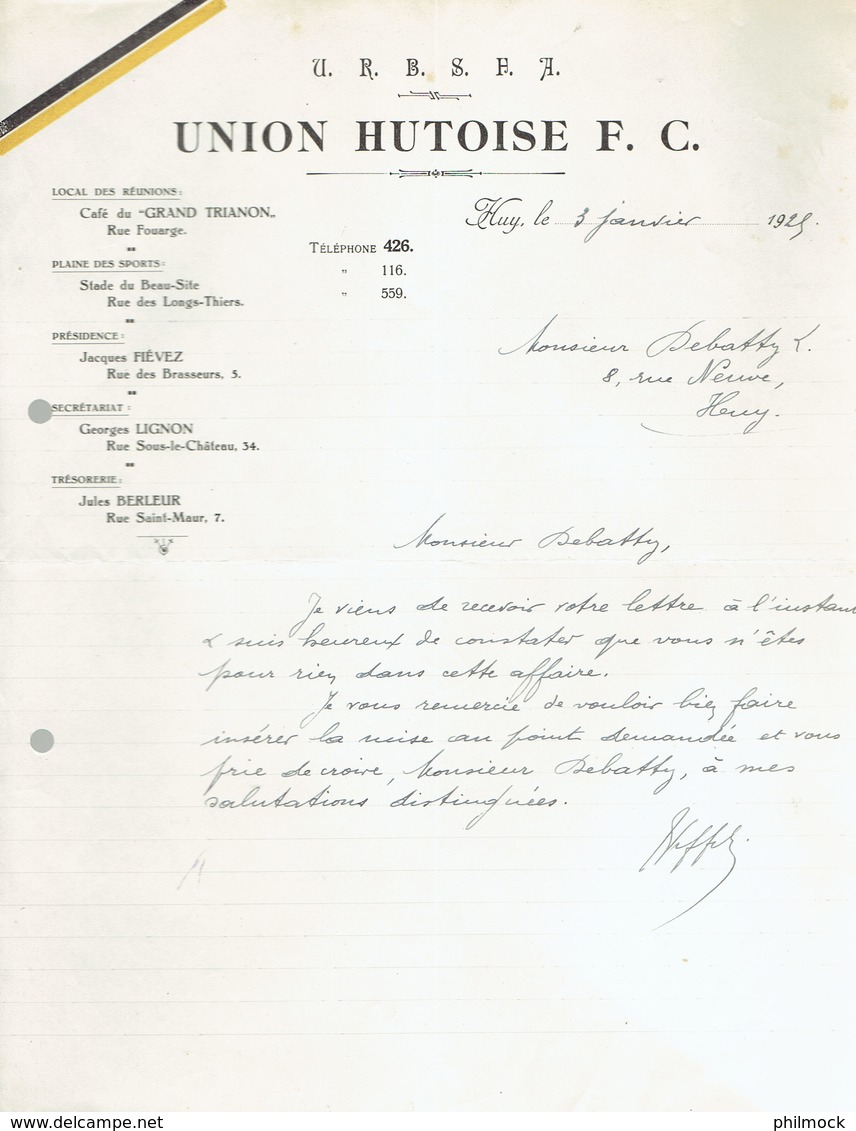 U. R. B. S. F. A.
UNION HUTOISE F. C.
LOCAL DES RÉUNIONS:
Café du "GRAND TRIANON„
Rue Fouarge.
PLAINE DES SPORTS:
Stade du Beau-Site
Rue des Longs-Thiers.
PRÉSIDENCE:
Jacques FIÉVEZ
Rue des Brasseurs, 5.
SECRÉTARIAT:
Georges LIGNON
Rue Sous-le-Château, 34.
TRÉSORERIE:
Jules BERLEUR
Rue Saint-Maur, 7.
TÉLÉPHONE 426.
" 116.
" 559.
Huy, le 3 janvier 1925.
Monsieur Debatty L.
8, rue Neuve,
Huy.
Monsieur Debatty,
Je viens de recevoir votre lettre à l'instant
& suis heureux de constater que vous n'êtes
pour rien dans cette affaire.
Je vous remercie de vouloir bien faire
insérer la mise au point demandée et vous
prie de croire, Monsieur Debatty, à mes
salutations distinguées.
delcampe.net
philmock